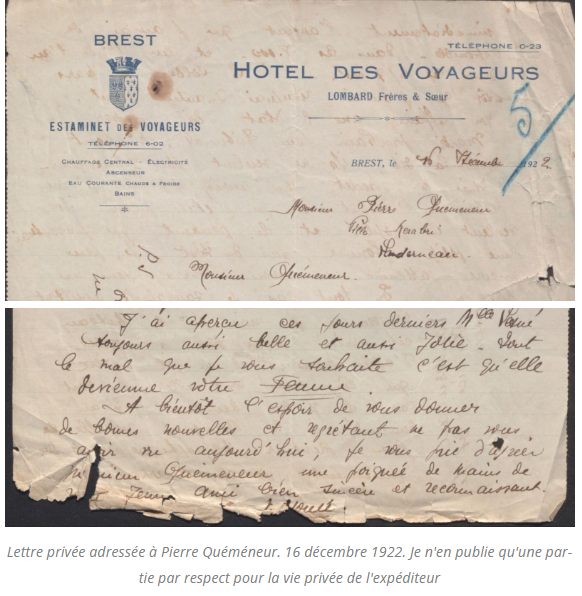 BREST
TÉLÉPHONE 0-23
HOTEL DES VOYAGEURS
LOMBARD Frères & Sœur
5
ESTAMINET DES VOYAGEURS
TÉLÉPHONE 6-02
CHAUFFAGE CENTRAL - ÉLECTRICITÉ
ASCENSEUR
EAU COURANTE CHAUDE & FROIDE
BAINS
BREST, le 16 Décembre 1922
Monsieur Pierre Quémeneur
Landerneau
Monsieur Quémeneur.
J'ai aperçu ces jours derniers Melle
toujours aussi belle et aussi Jolie. Tout
le mal que je vous souhaite c'est qu'elle
devienne votre Femme.
A bientôt l'espoir de vous donner
de bonnes nouvelles et regrétant ne pas vous
avoir vu aujourd'hui, je vous prie d'agréer
Monsieur Quemeneur une poignée de mains de
Jeune ami bien sincère et reconnaissant.
Lettre privée adressée à Pierre Quéméneur. 16 décembre 1922. Je n'en publie qu'une par-
tie par respect pour la vie privée de l'expéditeur